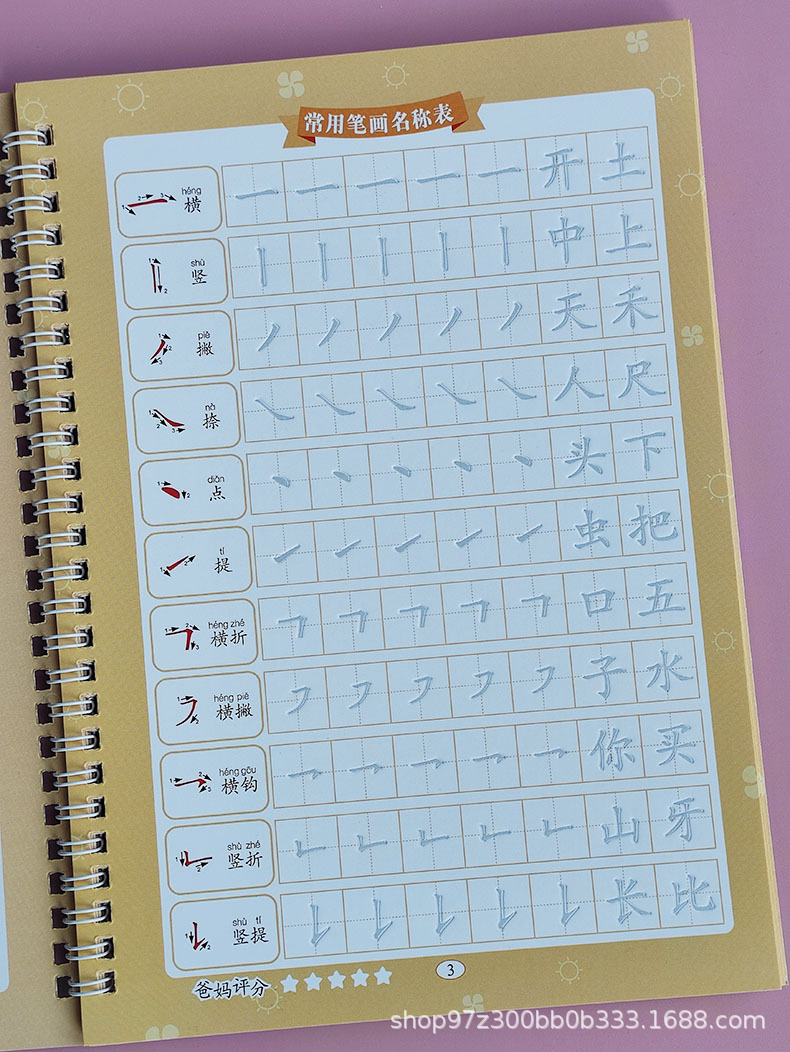 常用笔画名称表
héng
横 一 一 一 一 一 开 土
shù
竖 丨 丨 丨 丨 丨 中 上
piě
撇 丿 丿 丿 丿 丿 天 禾
nà
捺 ㇏ ㇏ ㇏ ㇏ ㇏ 人 尺
diǎn
点 丶 丶 丶 丶 丶 头 下
tí
提 ㇀ ㇀ ㇀ ㇀ ㇀ 虫 把
héng zhé
横折 ㇕ ㇕ ㇕ ㇕ ㇕ 口 五
héng piě
横撇 ㇇ ㇇ ㇇ ㇇ ㇇ 子 水
héng gōu
横钩 ㇖ ㇖ ㇖ ㇖ ㇖ 你 买
shù zhé
竖折 ㇗ ㇗ ㇗ ㇗ ㇗ 山 牙
shù tí
竖提 ㇙ ㇙ ㇙ ㇙ ㇙ 长 比
爸妈评分
3
shop97z300bb0b333.1688.com